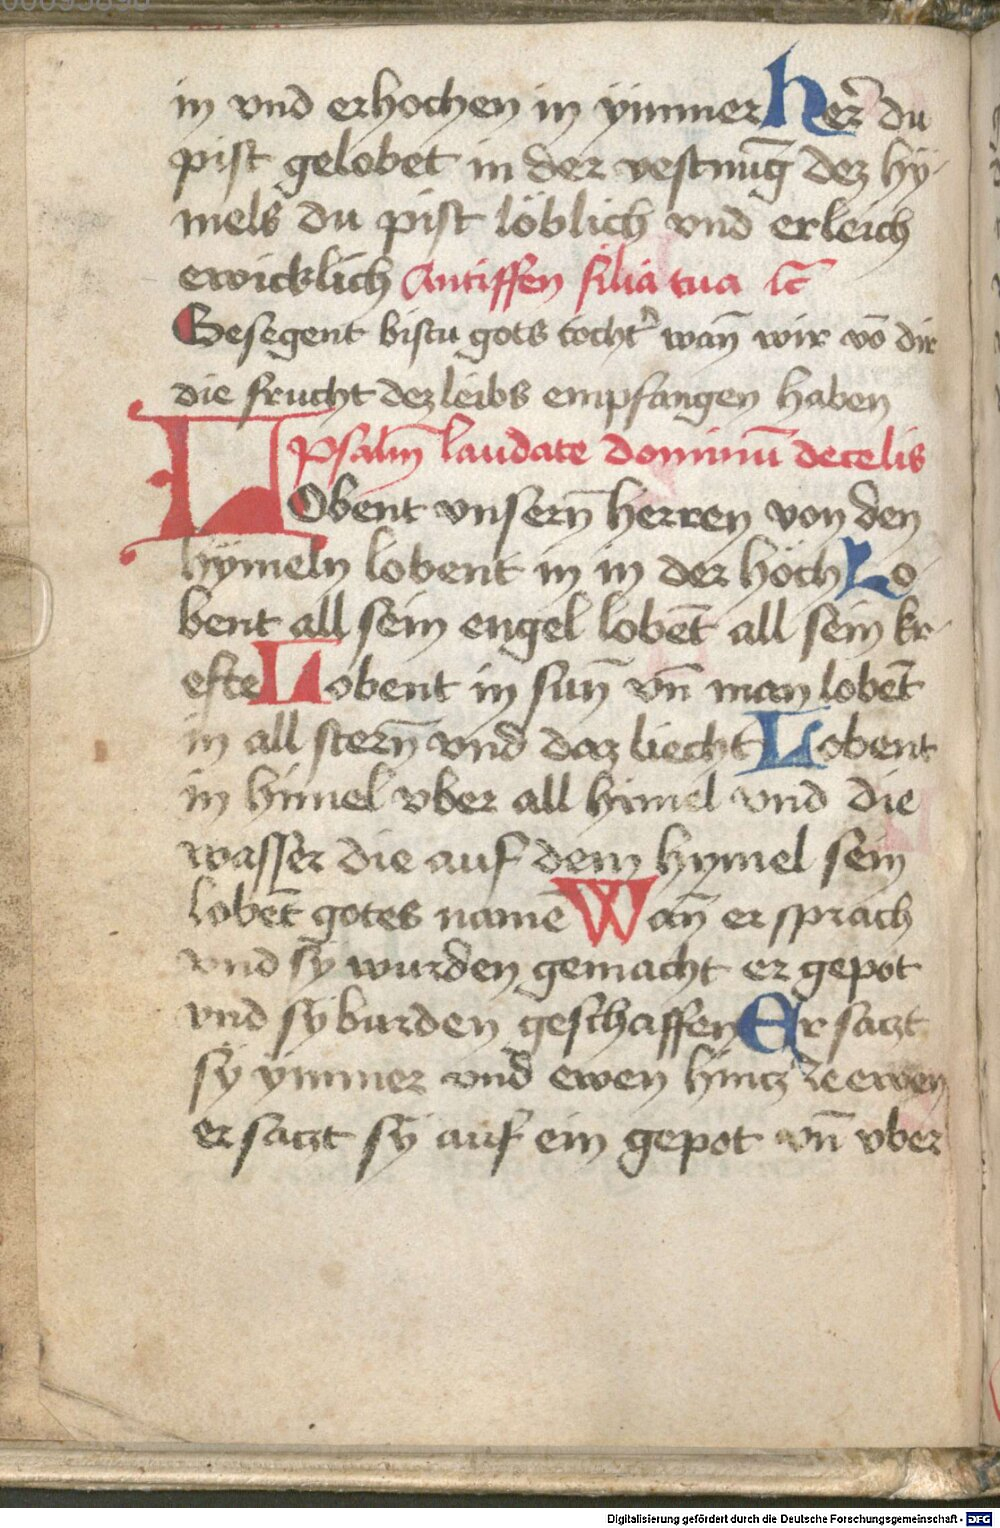 00095890
in vnd erhochen in ymmer her̄ du
pist gelobet in der vestnūg dez hÿ-
mels du pist löblich vnd erleich
ewicklich Antiffen filia tua ꝛc̄
Gesegent bistu gots tocht͛ wan̄ wir vō dir
die frucht dez leibs empfangen haben
Psalm̄ laudate dominū de celis
LObent vnsern̄ herren von den
hÿmeln lobent in in der höch Lo
bent all sein engel lobēt all sein kr-
efte Lobent in sun̄ vn̄ man lobēt
in all stern̄ vnd daz liecht Lobent
in himel vber all himel vnd die
wasser die auf dem hymel sein
lobēt gotes namē Wan̄ er sprach
vnd sÿ wurden gemacht er gepot
vnd sÿ burden geschaffen Er satzt
sÿ ymmer vnd ewen hintz ze ewen
er satzt sÿ auf ein gepot vn̄ vber
Digitalisierung gefördert durch die Deutsche Forschungsgemeinschaft - DFG